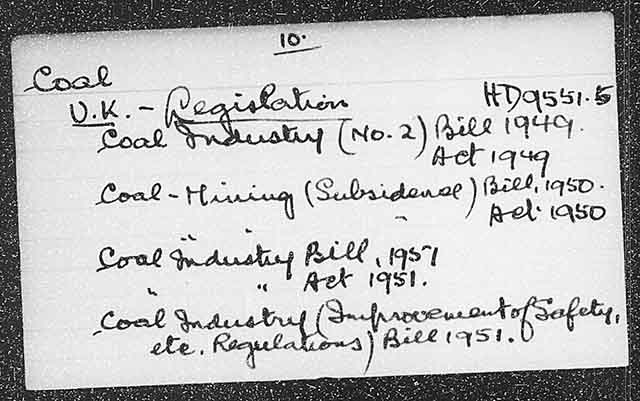 10.
Coal
U.K. - Legislation HD9551.5
Coal Industry (No. 2) Bill 1949.
Act 1949
Coal - Mining (Subsidence) Bill, 1950.
" " " Act 1950
Coal Industry Bill, 1951
" " Act 1951.
Coal Industry (Improvement of Safety,
etc. Regulations) Bill 1951.